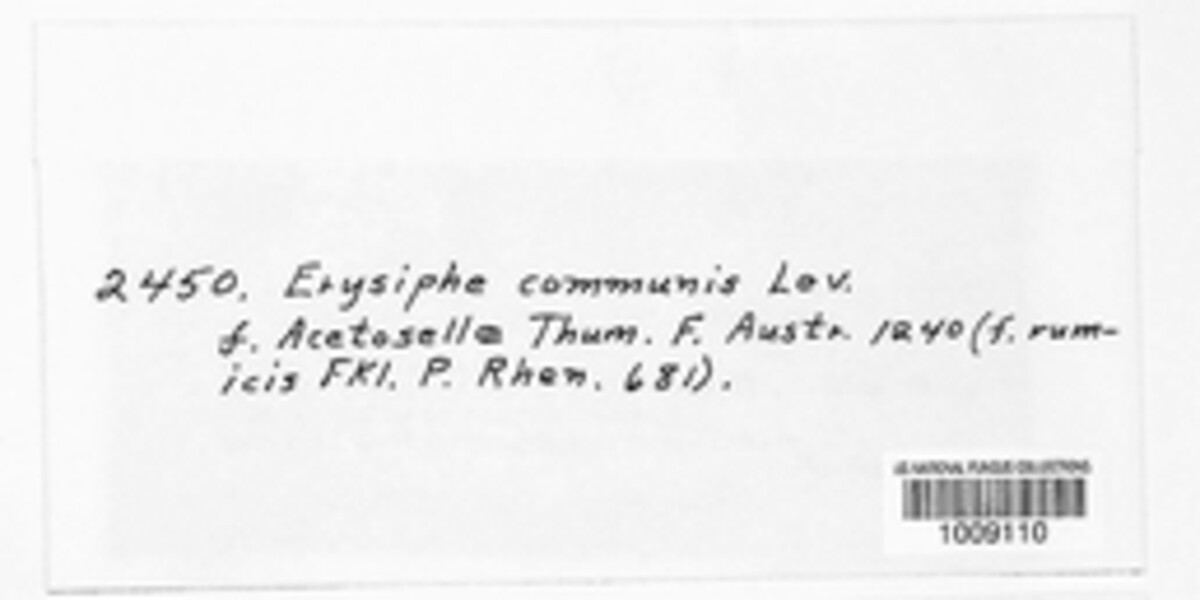 2450. Erysiphe communis Lev.
f. Acetosella Thum. F. Austr. 1240 (f. rum-
icis FKl. P. Rhen. 681).
US NATIONAL FUNGUS COLLECTIONS
1009110